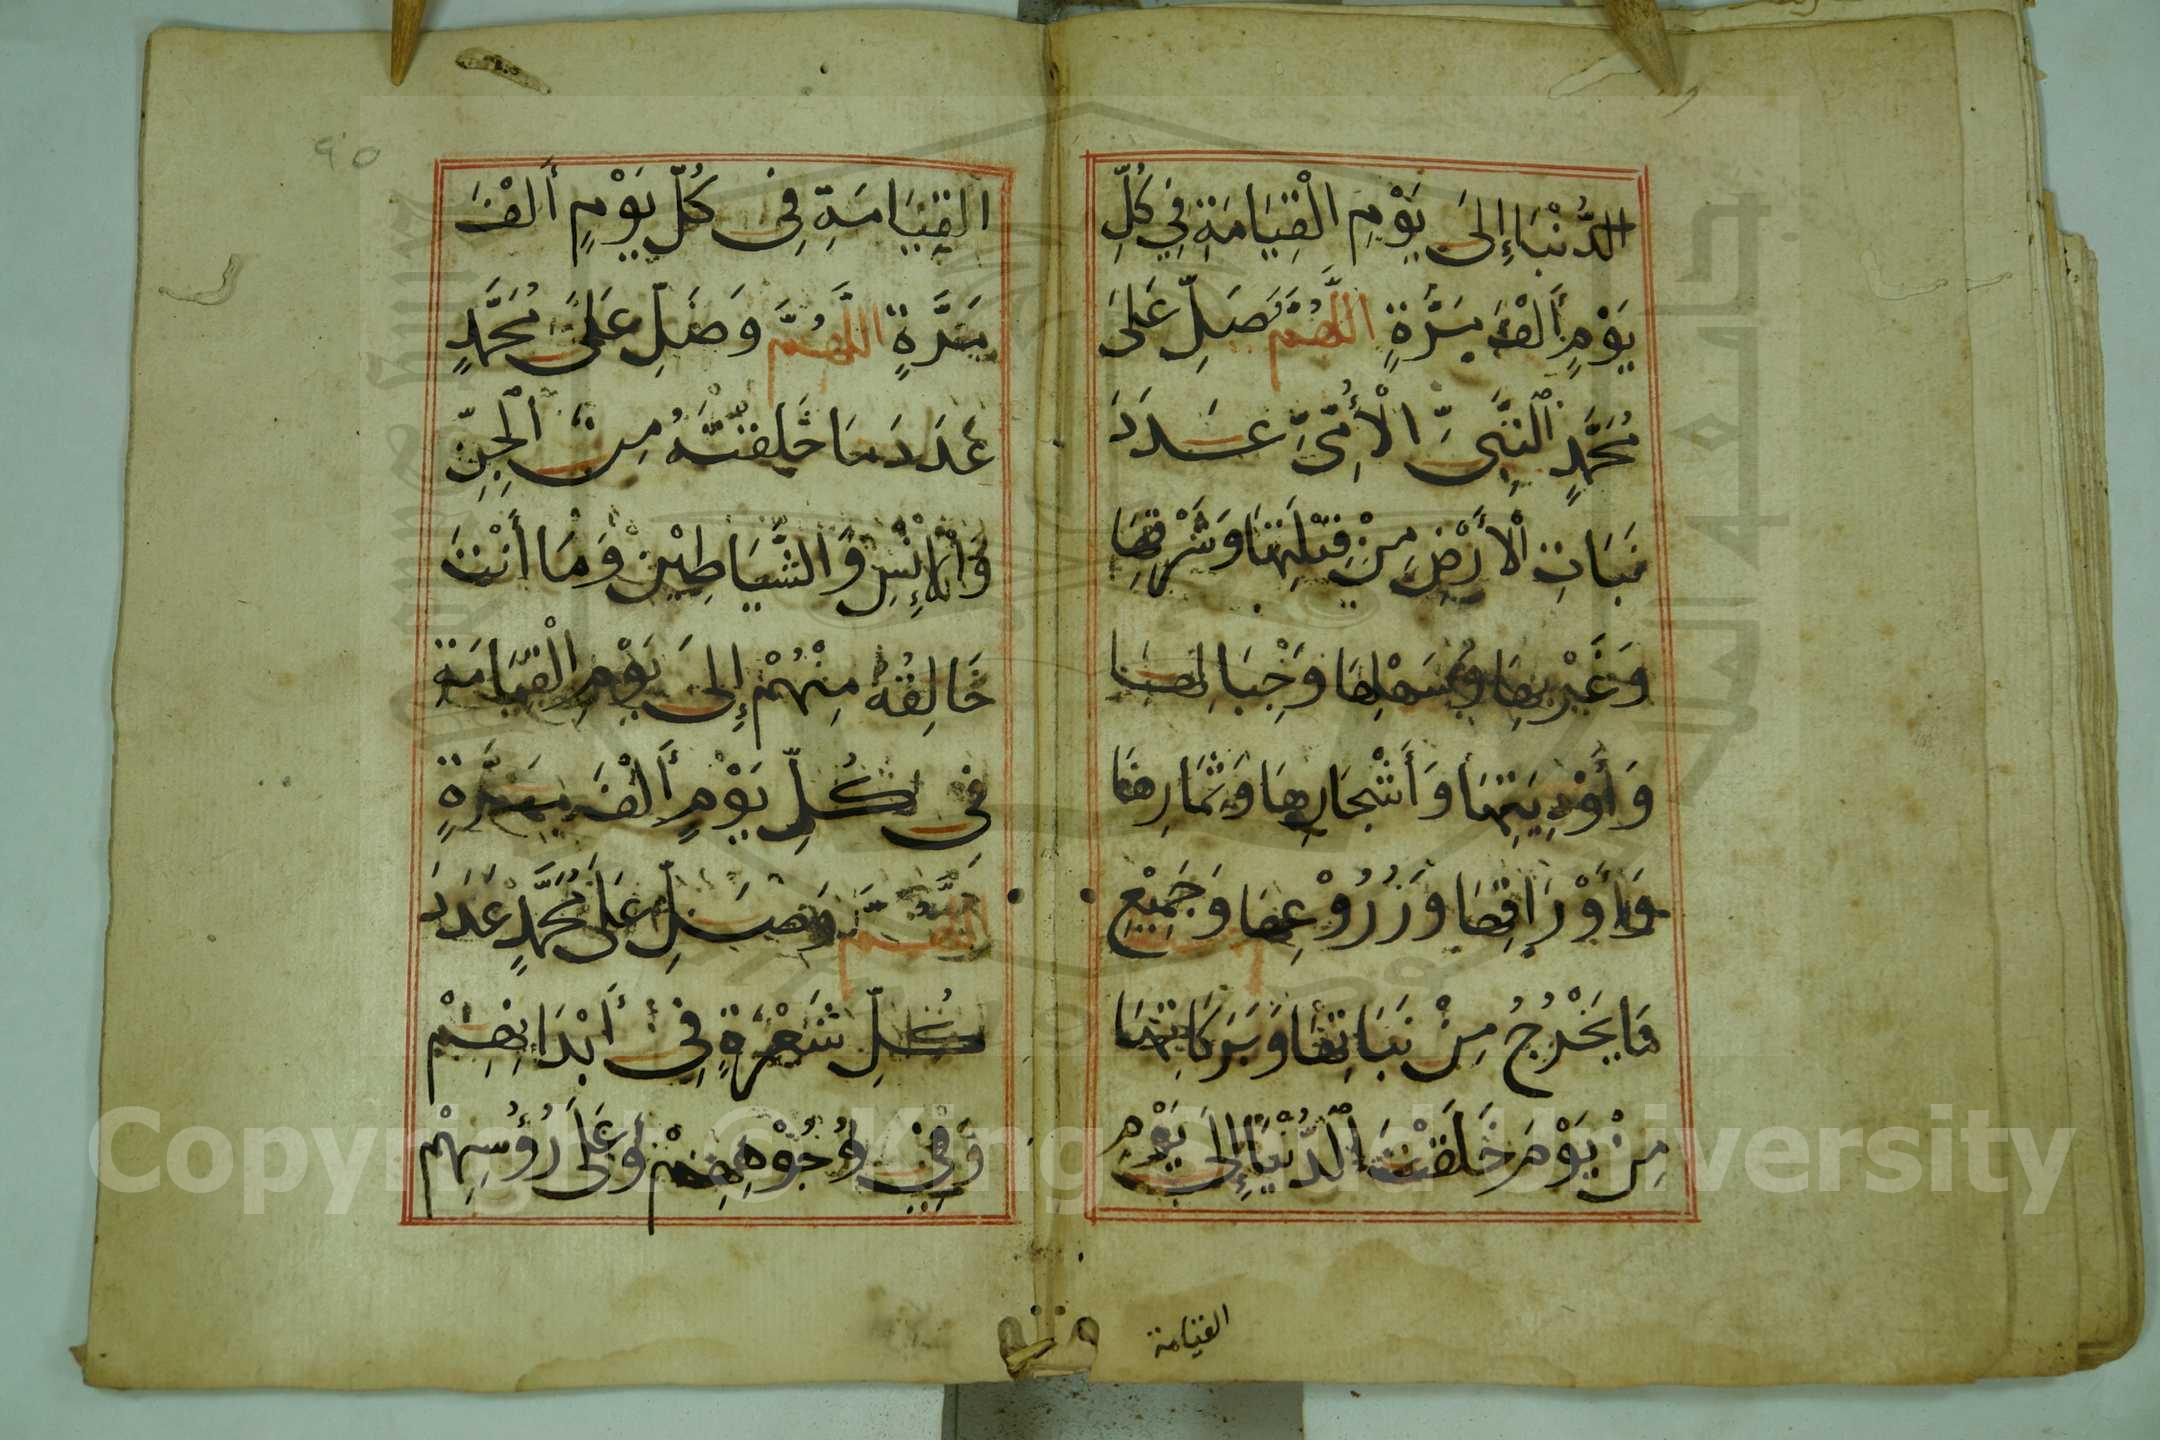 الدُّنْيَا إِلَى يَوْمِ الْقِيَامَةِ فِي كُلِّ
يَوْمٍ أَلْفَ مَرَّةٍ اللَّهُمَّ وَصَلِّ عَلَى
مُحَمَّدٍ النَّبِيِّ الْأُمِّيِّ عَدَدَ
نَبَاتِ الْأَرْضِ مِنْ قِبْلَتِهَا وَشَرْقِهَا
وَغَرْبِهَا وَسَهْلِهَا وَجِبَالِهَا
وَأَوْدِيَتِهَا وَأَشْجَارِهَا وَثِمَارِهَا
وَأَوْرَاقِهَا وَزُرُوْعِهَا وَجَمِيْعِ
مَا يَخْرُجُ مِنْ نَبَاتِهَا وَبَرَكَاتِهَا
مِنْ يَوْمَ خَلَقْتَ الدُّنْيَا إِلَى يَوْمِ
القيامة
٩٥
القِيَامَةِ فِى كُلِّ يَوْمٍ أَلْفَ
مَرَّةٍ اللَّهُمَّ وَصَلِّ عَلَى مُحَمَّدٍ
عَدَدَ مَا خَلَقْتَهُ مِنَ الْجِنِّ
وَالْإِنْسِ وَالشَّيَاطِيْنِ وَمَا أَنْتَ
خَالِقُهُ مِنْهُمْ إِلَى يَوْمِ الْقِيَامَةِ
فِى كُلِّ يَوْمٍ أَلْفَ مَرَّةٍ
اللَّهُمَّ وَصَلِّ عَلَى مُحَمَّدٍ عَدَدَ
كُلِّ شَعْرَةٍ فِي أَبْدَانِهِمْ
وَفِيْ وُجُوْهِهِمْ وَعَلَى رُؤُسِهِمْ
Copyright © King Saud University